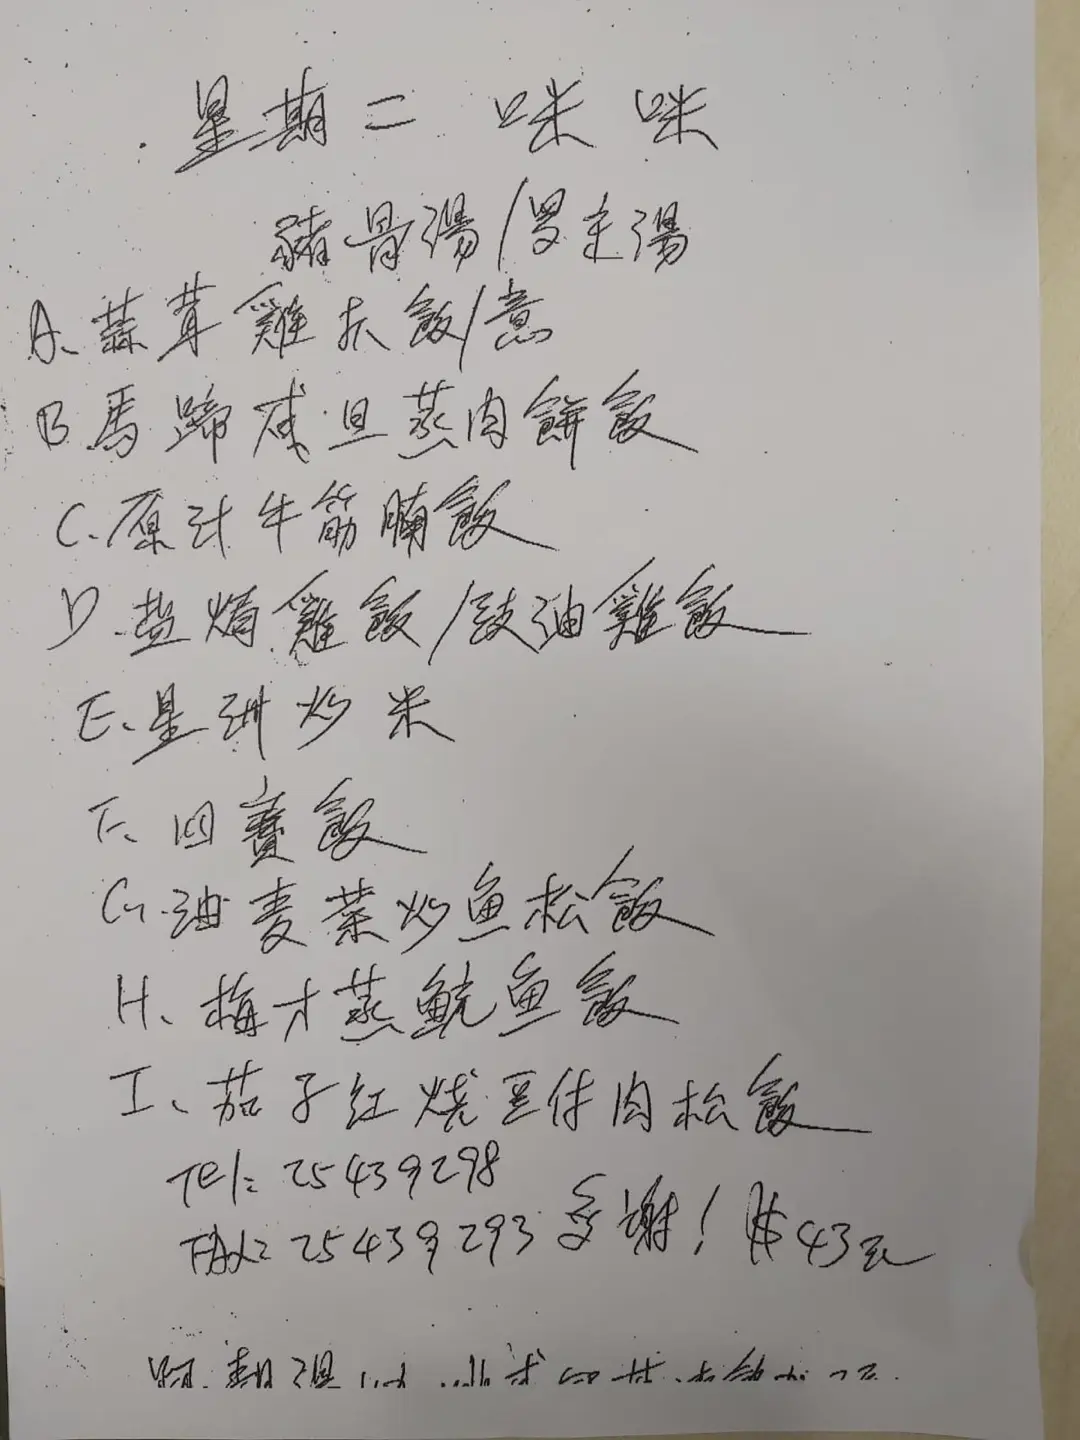 星期二 咪咪
豬骨湯/罗宋湯
A、蒜茸雞扒飯/意
B.馬蹄咸旦蒸肉餅飯
C.原汁牛筋腩飯
D.盐焗雞飯/豉油雞飯
E、星洲炒米
F、四寶飯
G.油麦菜炒鱼松飯
H、梅才蒸鯇鱼飯
I、茄子红燒豆付肉松飯
Tel: 25439298
FAX: 25439293 多謝! H$43元